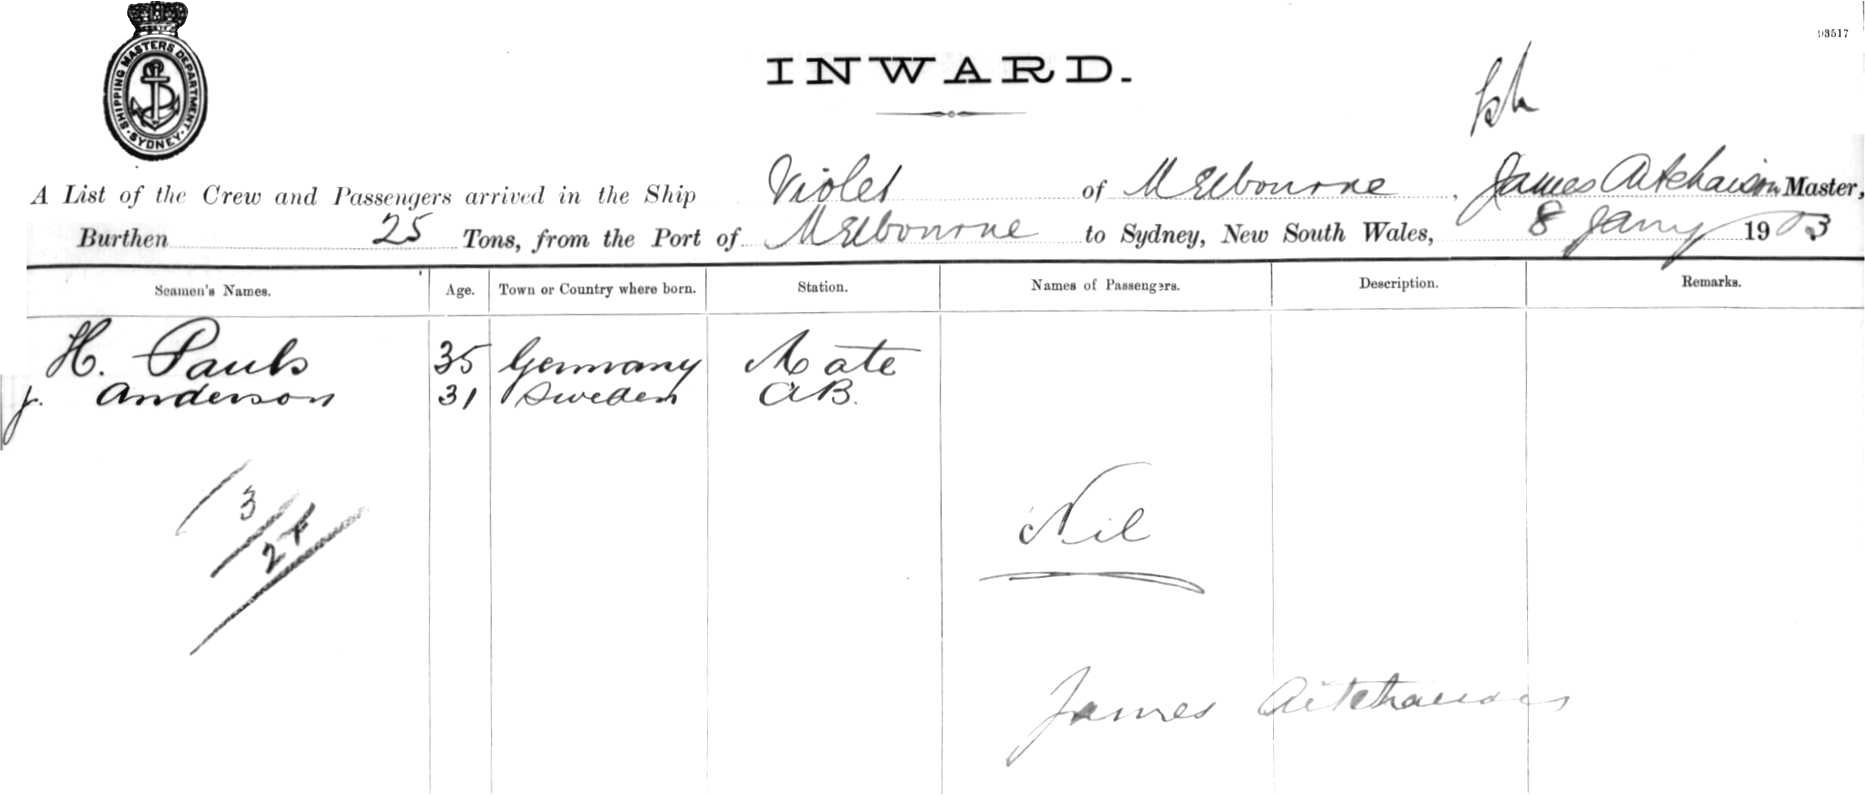 SHIPPING MASTERS DEPARTMENT · SYDNEY ·
93517
INWARD.
A List of the Crew and Passengers arrived in the Ship Violet of Melbourne, James Aitchaison Master,
Burthen 25 Tons, from the Port of Melbourne to Sydney, New South Wales, 8 Jany 1903
Seamen's Names. Age. Town or Country where born. Station. Names of Passengers. Description. Remarks.
H. Pauls 35 Germany Mate
J. Anderson 31 Sweden AB.
3
Nil
James Aitchaison